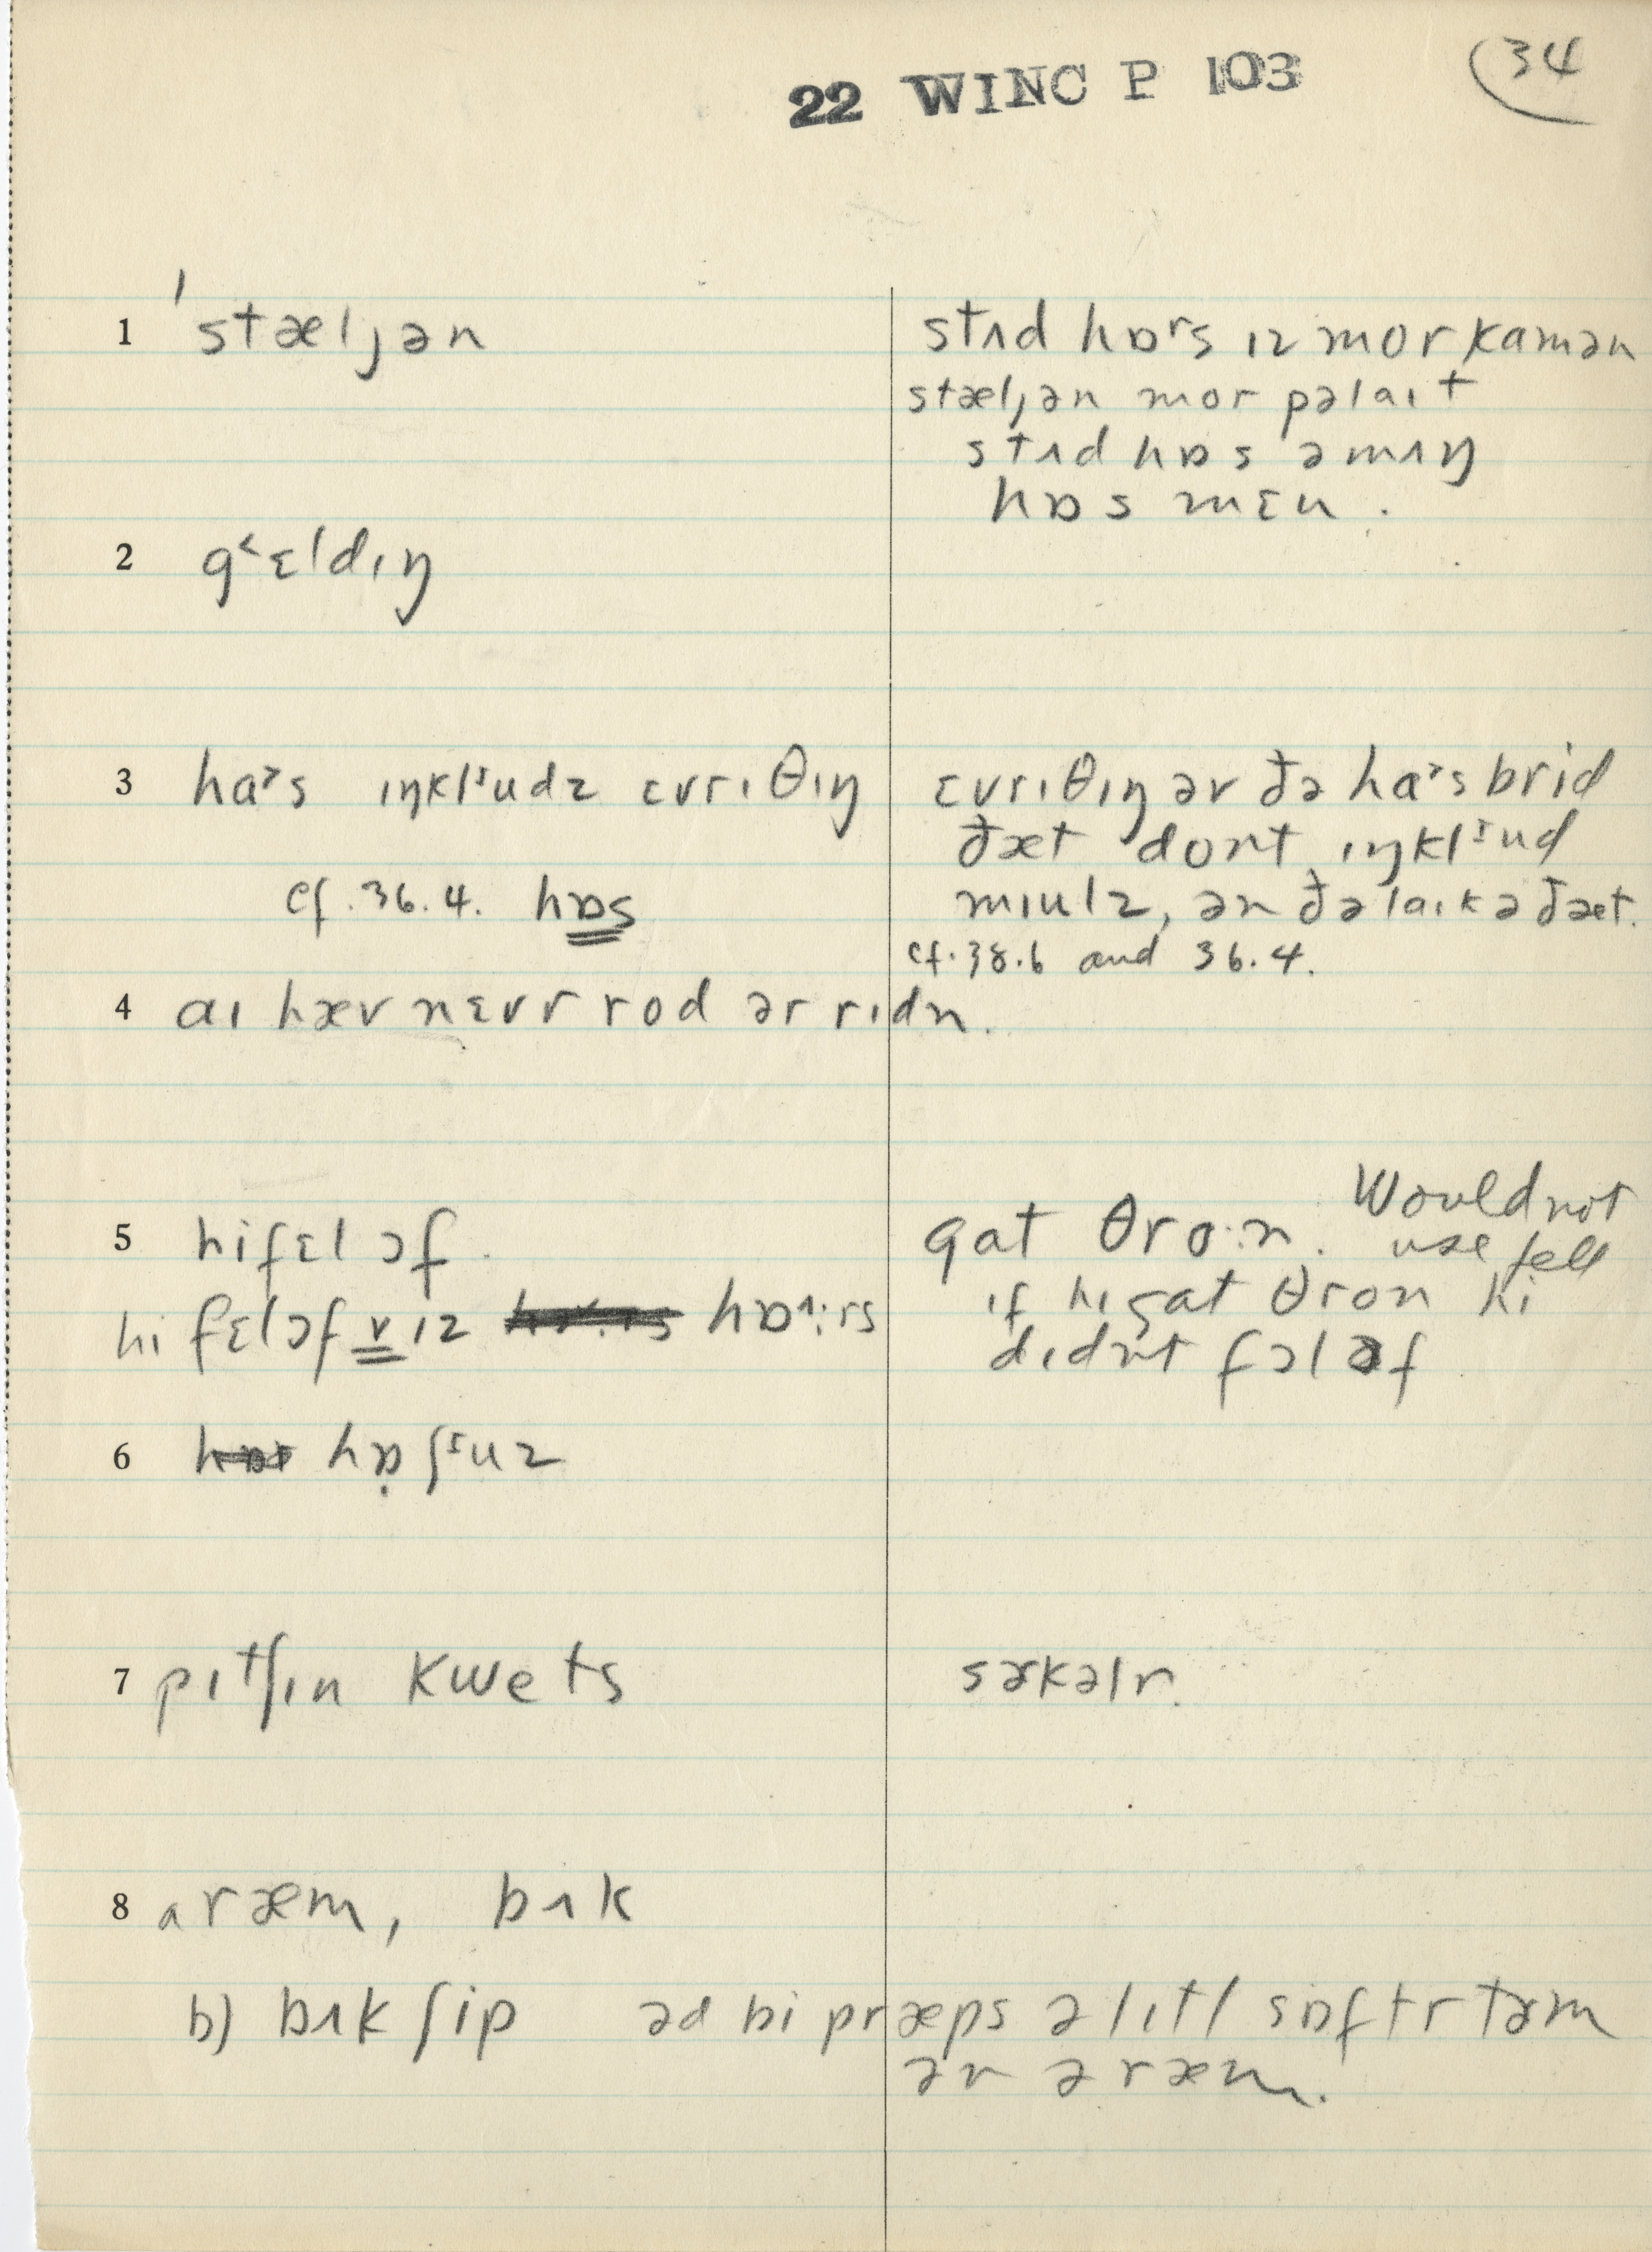 22 WINC P 103
34
1 ˈstæljən
stʌd hɒʳs ɪz mor kamən
stæljən mor pəlaɪt
stʌd hɒs əmʌŋ
hɒs mɛn.
2 g˂ɛldɪŋ
3 haɚs ɪŋklᶦudz ɛvrɪθɪŋ
cf. 36.4. hɒs
ɛvrɪθɪŋ əv ðə haɚs brid
ðæt dont ɪŋklᶦud
mɪulz, ən ðə laɪk ə ðæt.
cf. 38.6 and 36.4.
4 aɪ hæv nɛvr rod ər rɪdn.
5 hi fɛl ɔf.
hi fɛl ɔf v ɪz hɒ˄:rs
gat θro:n. Would not
use fell
if hi gat θron hi
dɪdnt fɔl ɔf
6 hɒ̣ ʃᶦuz
7 pɪtʃɪn kwets
sɚkəlr.
8 ʌ ræm, bʌk
b) bʌk ʃip əd bi præps ə lɪtl sɒftr tɚm
ən ə ræm.